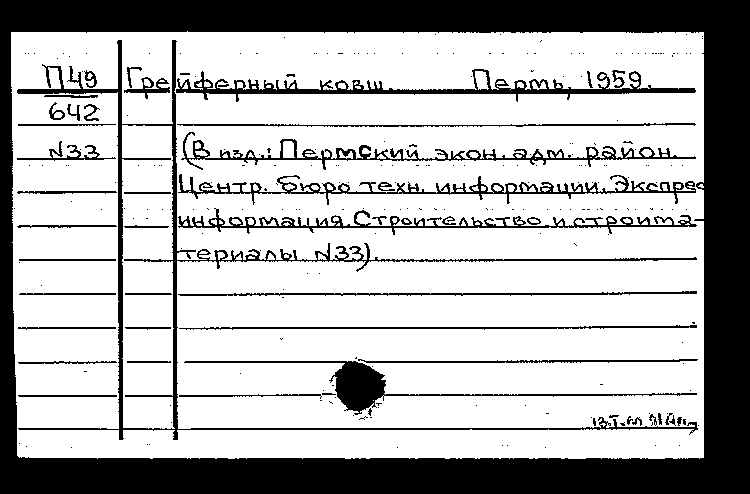 П49 Грейферный ковш. Пермь, 1959.
642
N33 (В изд.: Пермский экон. адм. район.
Центр. бюро техн. информации. Экспрес
информация. Строительство и строима-
териалы N33).